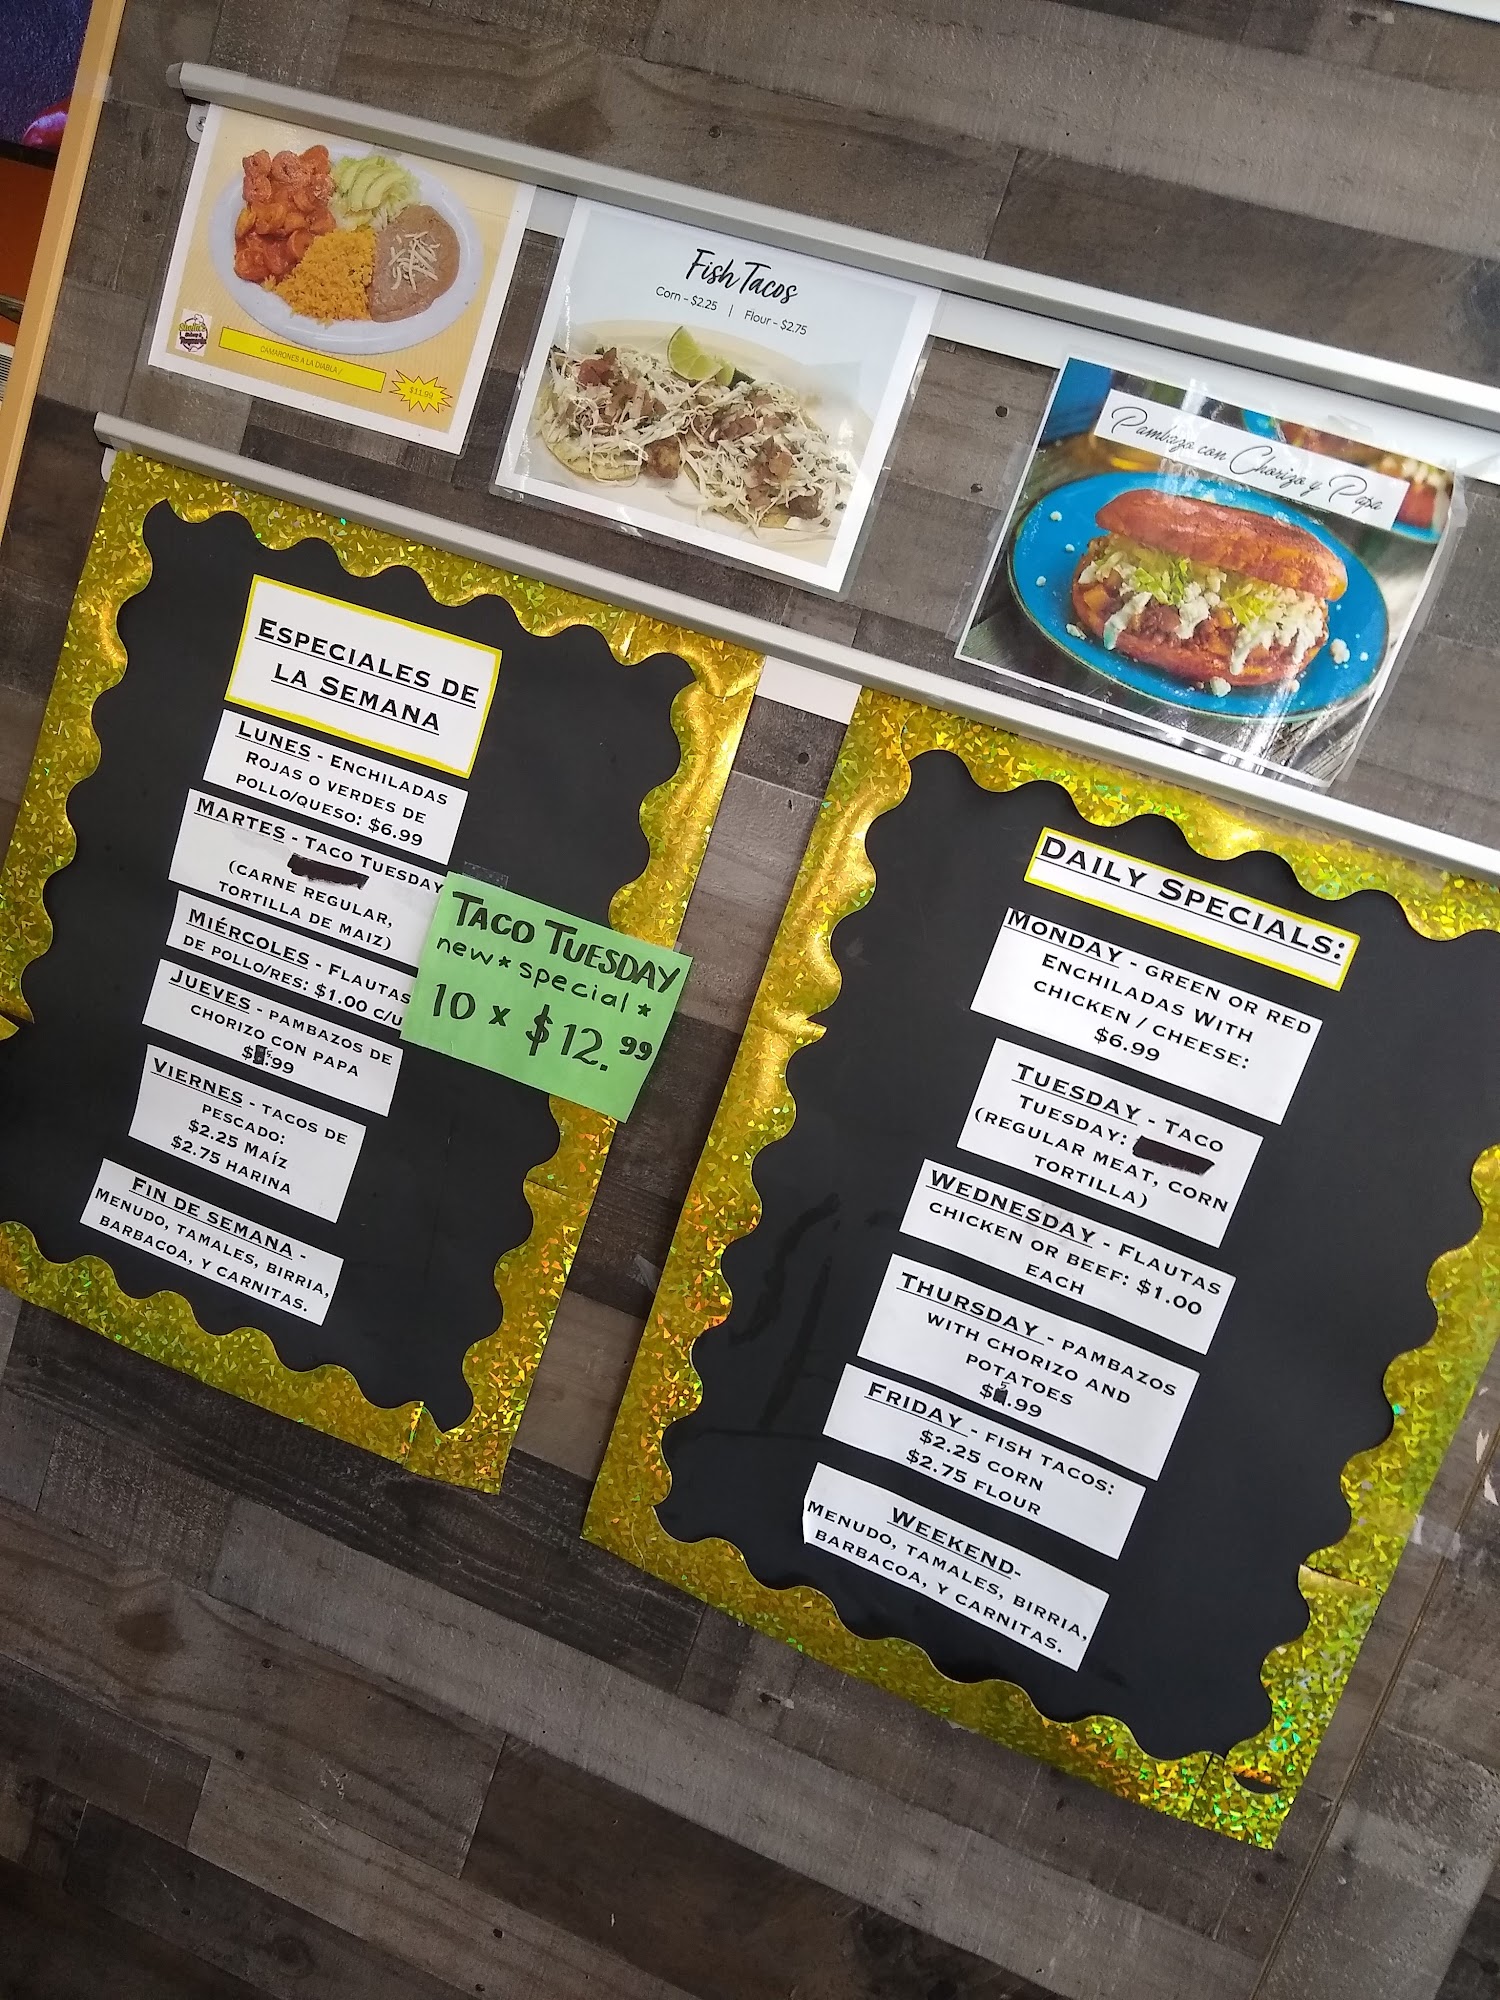 CAMARONES A LA DIABLA /
$11.99
Fish Tacos
Corn - $2.25 | Flour - $2.75
Pambazo con Chorizo y Papa
ESPECIALES DE
LA SEMANA
LUNES - ENCHILADAS
ROJAS O VERDES DE
POLLO/QUESO: $6.99
MARTES - TACO TUESDAY
(CARNE REGULAR,
TORTILLA DE MAIZ)
MIÉRCOLES - FLAUTAS
DE POLLO/RES: $1.00 C/U
JUEVES - PAMBAZOS DE
CHORIZO CON PAPA
$5.99
VIERNES - TACOS DE
PESCADO:
$2.25 MAÍZ
$2.75 HARINA
FIN DE SEMANA -
MENUDO, TAMALES, BIRRIA,
BARBACOA, Y CARNITAS.
TACO TUESDAY
new * special *
10 x $12.99
DAILY SPECIALS:
MONDAY - GREEN OR RED
ENCHILADAS WITH
CHICKEN / CHEESE:
$6.99
TUESDAY - TACO
TUESDAY:
(REGULAR MEAT, CORN
TORTILLA)
WEDNESDAY - FLAUTAS
CHICKEN OR BEEF: $1.00
EACH
THURSDAY - PAMBAZOS
WITH CHORIZO AND
POTATOES
$5.99
FRIDAY - FISH TACOS:
$2.25 CORN
$2.75 FLOUR
WEEKEND-
MENUDO, TAMALES, BIRRIA,
BARBACOA, Y CARNITAS.